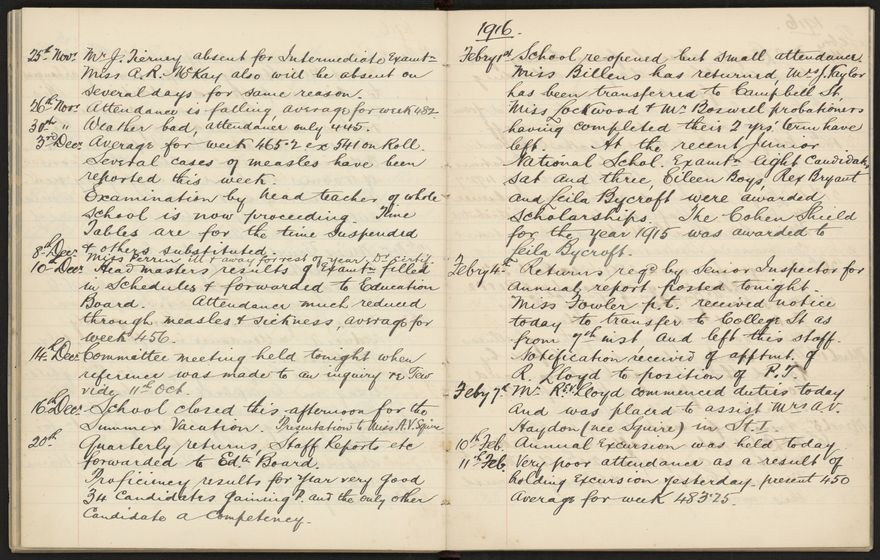 25th Novr Mr J. Tierney absent for Intermediate Examtn
Miss A. R. McKay also will be absent on
several days for same reason.
26th Novr Attendance is falling, average for week 482
30th " Weather bad, attendance only 445.
3rd Decr Average for week 465.2 ex 541 on Roll.
Several cases of measles have been
reported this week.
Examination by head teacher of whole
school is now proceeding. Time
Tables are for the time suspended
& others substituted.
8th Decr Miss Perrin away for rest of year, Dr Certif.
10th Decr Head masters results of Examtn filled
in Schedules & forwarded to Education
Board. Attendance much reduced
through measles & sickness, average for
week 456.
14th Decr Committee meeting held tonight when
reference was made to an inquiry re Tew
vide 11th Oct.
16th Decr School closed this afternoon for the
Summer Vacation. Presentation to Miss A.V. Squire
20th Quarterly returns, Staff Reports etc
forwarded to Edtn Board.
Proficiency results for year very good
34 Candidates gaining P. and the only other
Candidate a Competency.
1916.
Febry 1st School re-opened but small attendance.
Miss Billens has returned, Mrs J. Taylor
has been transferred to Campbell St.
Miss Lockwood & Mr Boswell probationers
having completed their 2 yrs' term have
left. At the recent Junior
National Schol. Examtn eight candidates
sat and three, Eileen Boys, Rex Bryant
and Leila Bycroft were awarded
Scholarships. The Cohen Shield
for the year 1915 was awarded to
Leila Bycroft.
Febry 4th Returns reqd by Senior Inspector for
annual report posted tonight.
Miss Fowler p.t. received notice
today to transfer to College St as
from 7th inst and left this staff.
Notification received of apptmt. of
R. Lloyd to position of P.T
Feby 7th Mr Rex Lloyd commenced duties today
and was placed to assist Mrs A.V.
Haydon (nee Squire) in St. I.
10th Feb. Annual Excursion was held today
11th Feb. Very poor attendance as a result of
holding excursion yesterday. present 450
average for week 483.25.